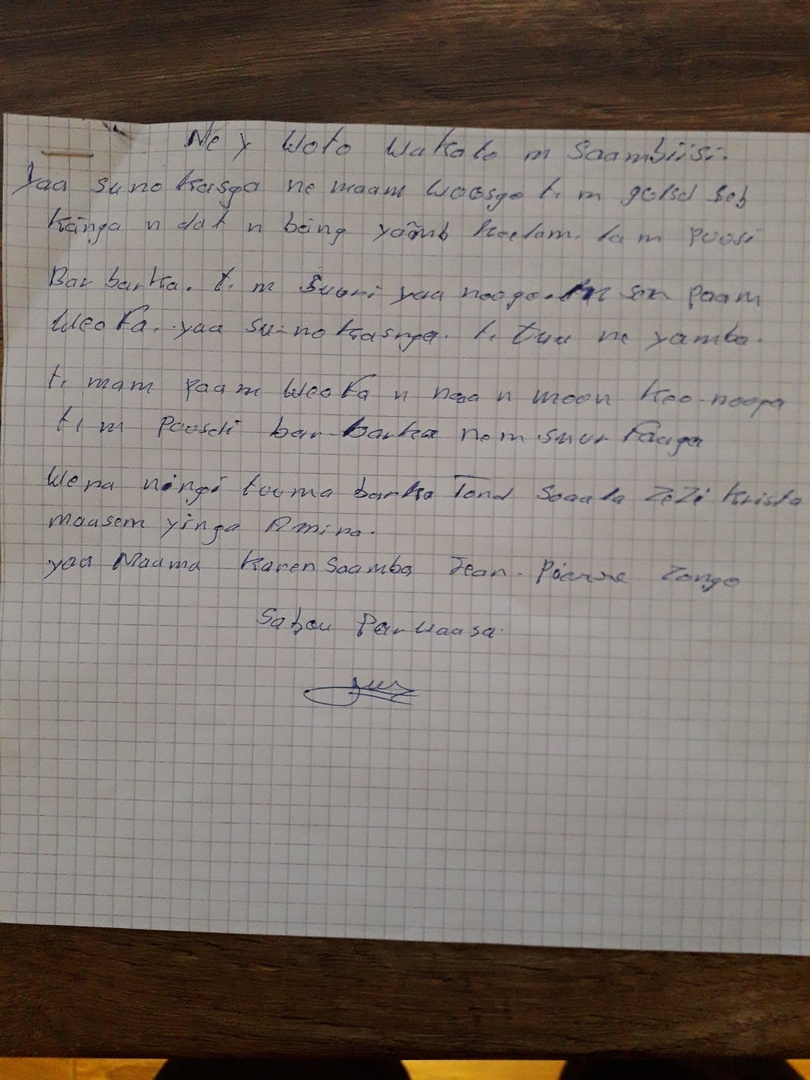 Ne y Woto Wakato m Saambiisi.
yaa suno kasga ne maam Waosgo ti m golsd seb
kanga n dat n bang yãmb keelam. la m puusi
Bar barka. ti m suuri yaa noogo. M sen paam
Weofa. yaa su-no kasnga. ti tuu ne yamba.
ti mam paam Weofa n naa n moon koo-noopa
ti m puusdi bar-barka ne m suur faaga
Wena ningi tuuma barka Tond Soaala ZeZi krista
maasem yinga Amina.
yaa Maama Karen Saamba Jean-Pierre Zongo
Sabou Parwaasa.